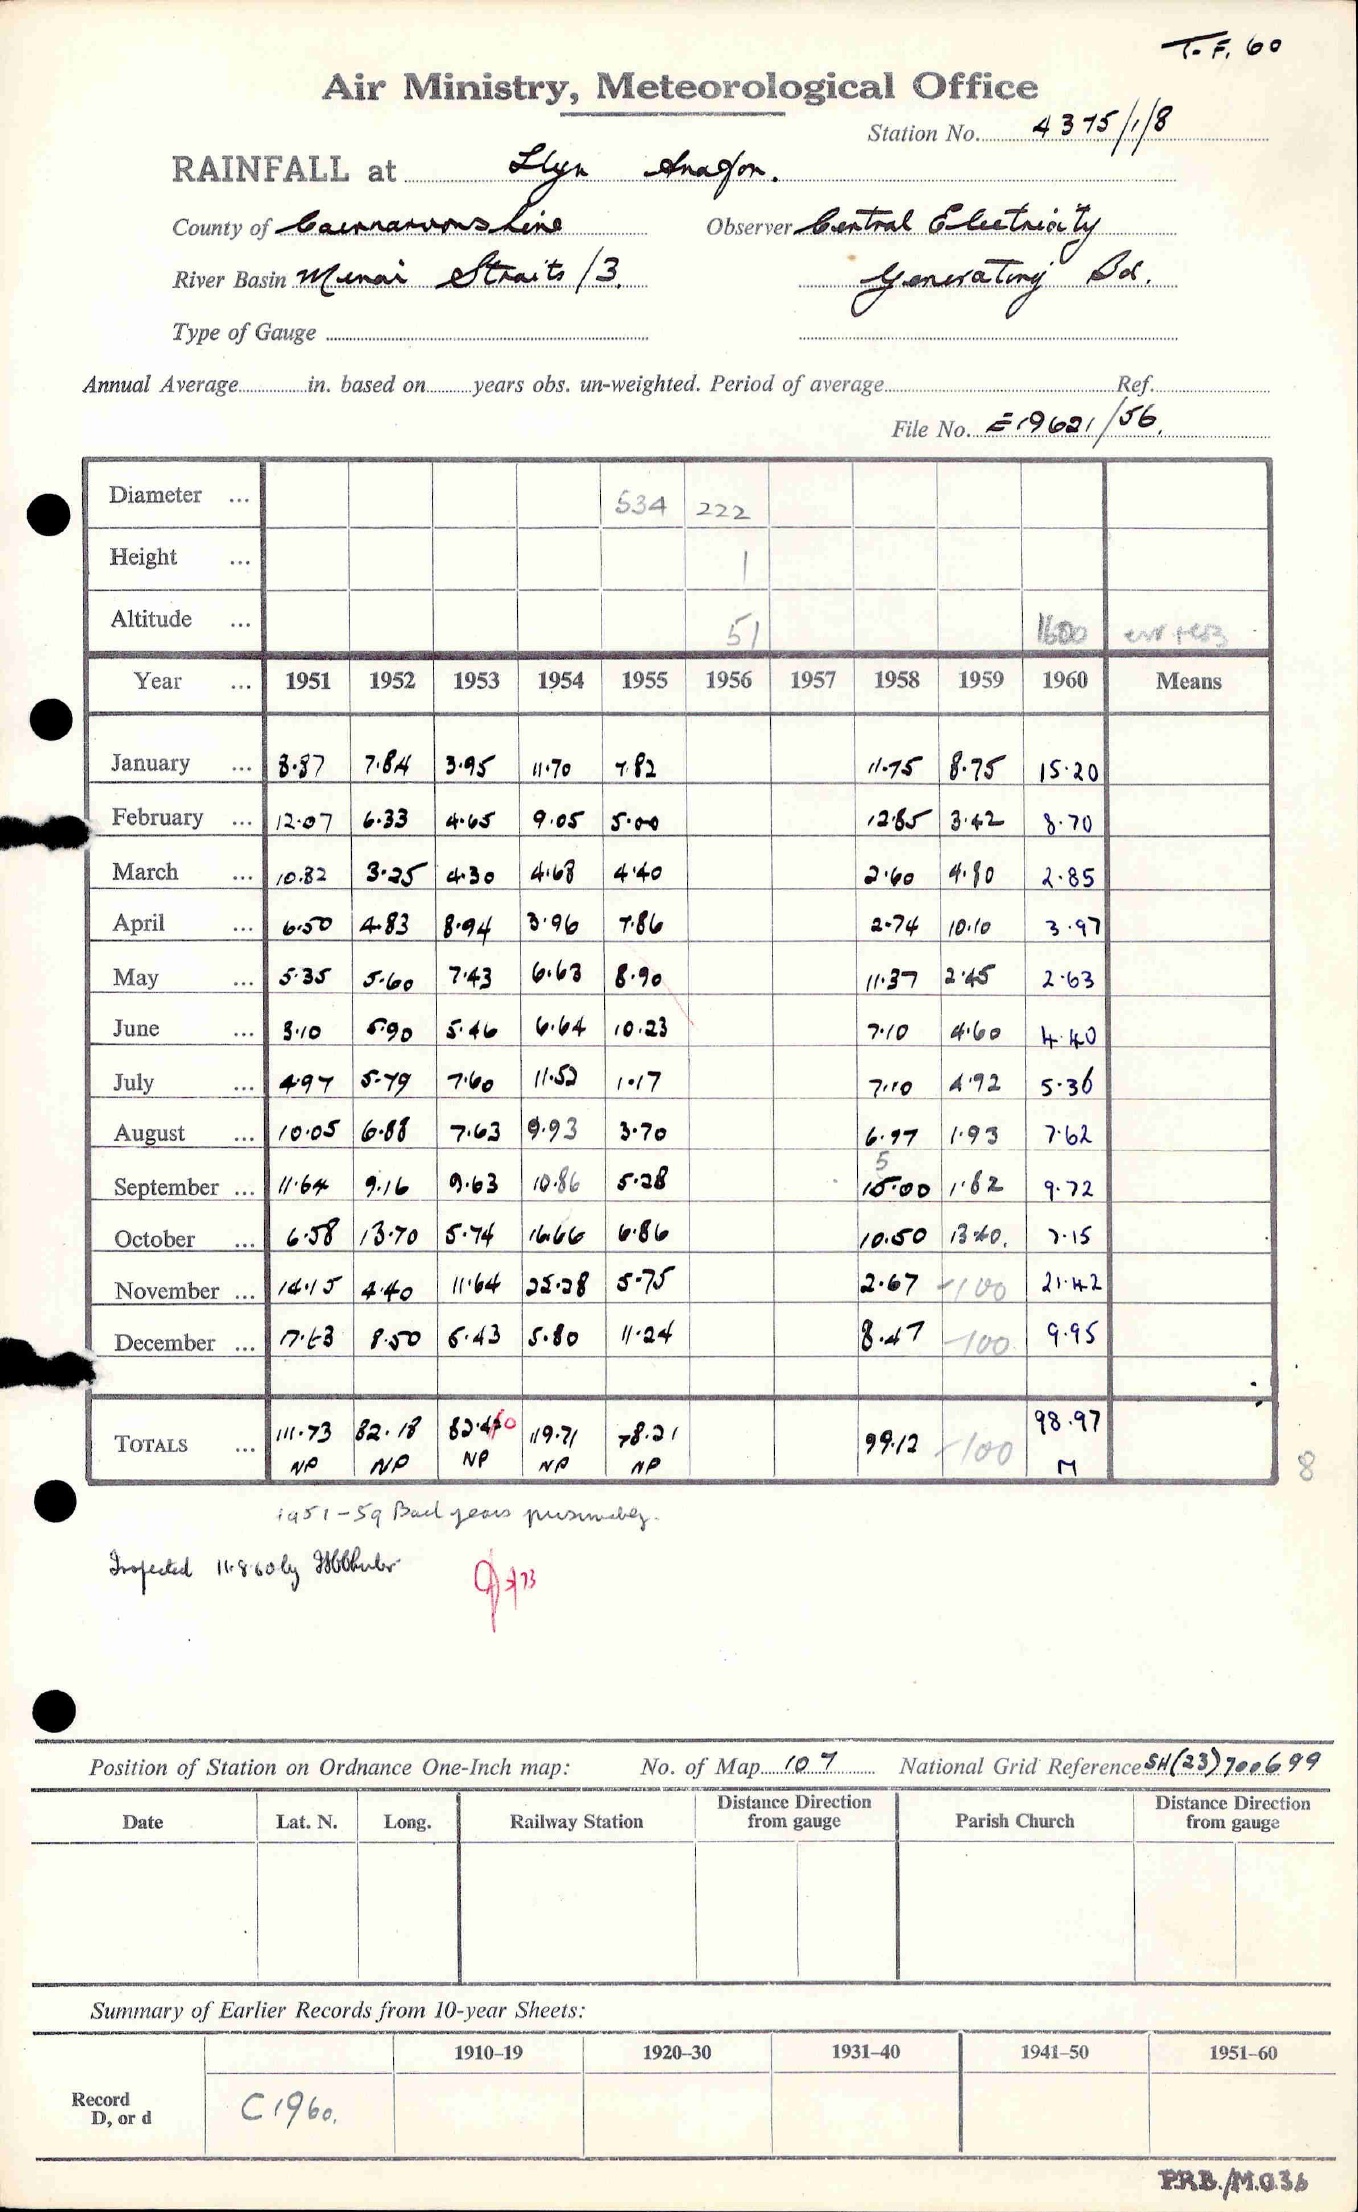 T.F. 60
Air Ministry, Meteorological Office
Station No. 4375/1/8
RAINFALL at Llyn Anafon.
County of Caernarvonshire Observer Central Electricity
River Basin Menai Straits /3. Generating Bd.
Type of Gauge
Annual Average in. based on years obs. un-weighted. Period of average Ref.
File No. E19621/56.
Diameter ... 534 222
Height ... 1
Altitude ... 51 1600
Year ... 1951 1952 1953 1954 1955 1956 1957 1958 1959 1960 Means
January ... 8.87 7.84 3.95 11.70 7.82 11.75 8.75 15.20
February ... 12.07 6.33 4.65 9.05 5.00 12.85 3.42 8.70
March ... 10.82 3.25 4.30 4.68 4.40 2.60 4.80 2.85
April ... 6.50 4.83 8.94 3.96 7.86 2.74 10.10 3.97
May ... 5.35 5.60 7.43 6.63 8.90 11.37 2.45 2.63
June ... 3.10 5.90 5.46 6.64 10.23 7.10 4.60 4.40
July ... 4.97 5.79 7.60 11.52 1.17 7.10 4.92 5.36
August ... 10.05 6.88 7.63 9.93 3.70 6.97 1.93 7.62
5
September ... 11.64 9.16 9.63 10.86 5.28 15.00 1.82 9.72
October ... 6.58 13.70 5.74 16.66 6.86 10.50 13.40. 7.15
November ... 14.15 4.40 11.64 22.28 5.75 2.67 -100 21.42
December ... 17.63 8.50 5.43 5.80 11.24 8.47 -100 9.95
TOTALS ... 111.73 82.18 82.40 119.71 78.21 99.12 -100 98.97
NP NP NP NP NP M
8
1951-59 Bad years presumably.
Inspected 11.8.60 by
Position of Station on Ordnance One-Inch map: No. of Map 107 National Grid Reference SH(23)700699
Date Lat. N. Long. Railway Station Distance Direction from gauge Parish Church Distance Direction from gauge
Summary of Earlier Records from 10-year Sheets:
1910–19 1920–30 1931–40 1941–50 1951–60
Record
D, or d C1960.
P.R.B./M.O.36